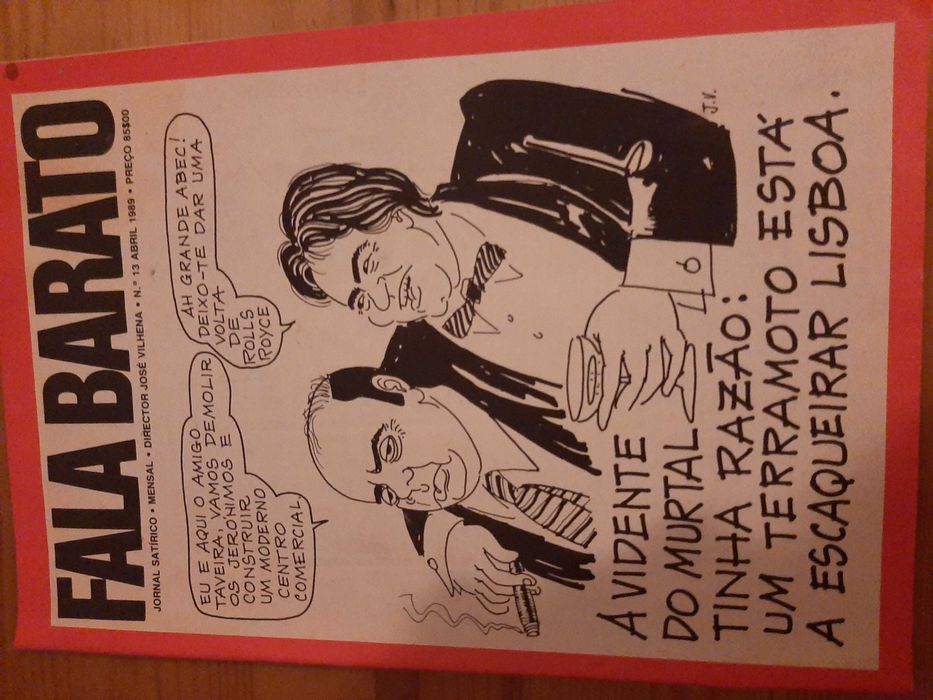 FALA BARATO
JORNAL SATÍRICO • MENSAL • DIRECTOR JOSÉ VILHENA • N.º 13 ABRIL 1989 • PREÇO 85$00
EU E AQUI O AMIGO
TAVEIRA, VAMOS DEMOLIR
OS JERÓNIMOS E
CONSTRUIR
UM MODERNO
CENTRO
COMERCIAL
AH GRANDE ABEC!
DEIXO-TE DAR UMA
VOLTA
DE
ROLLS
ROYCE
J.V.
A VIDENTE
DO MURTAL
TINHA RAZÃO:
UM TERRAMOTO ESTÁ
A ESCAQUEIRAR LISBOA.